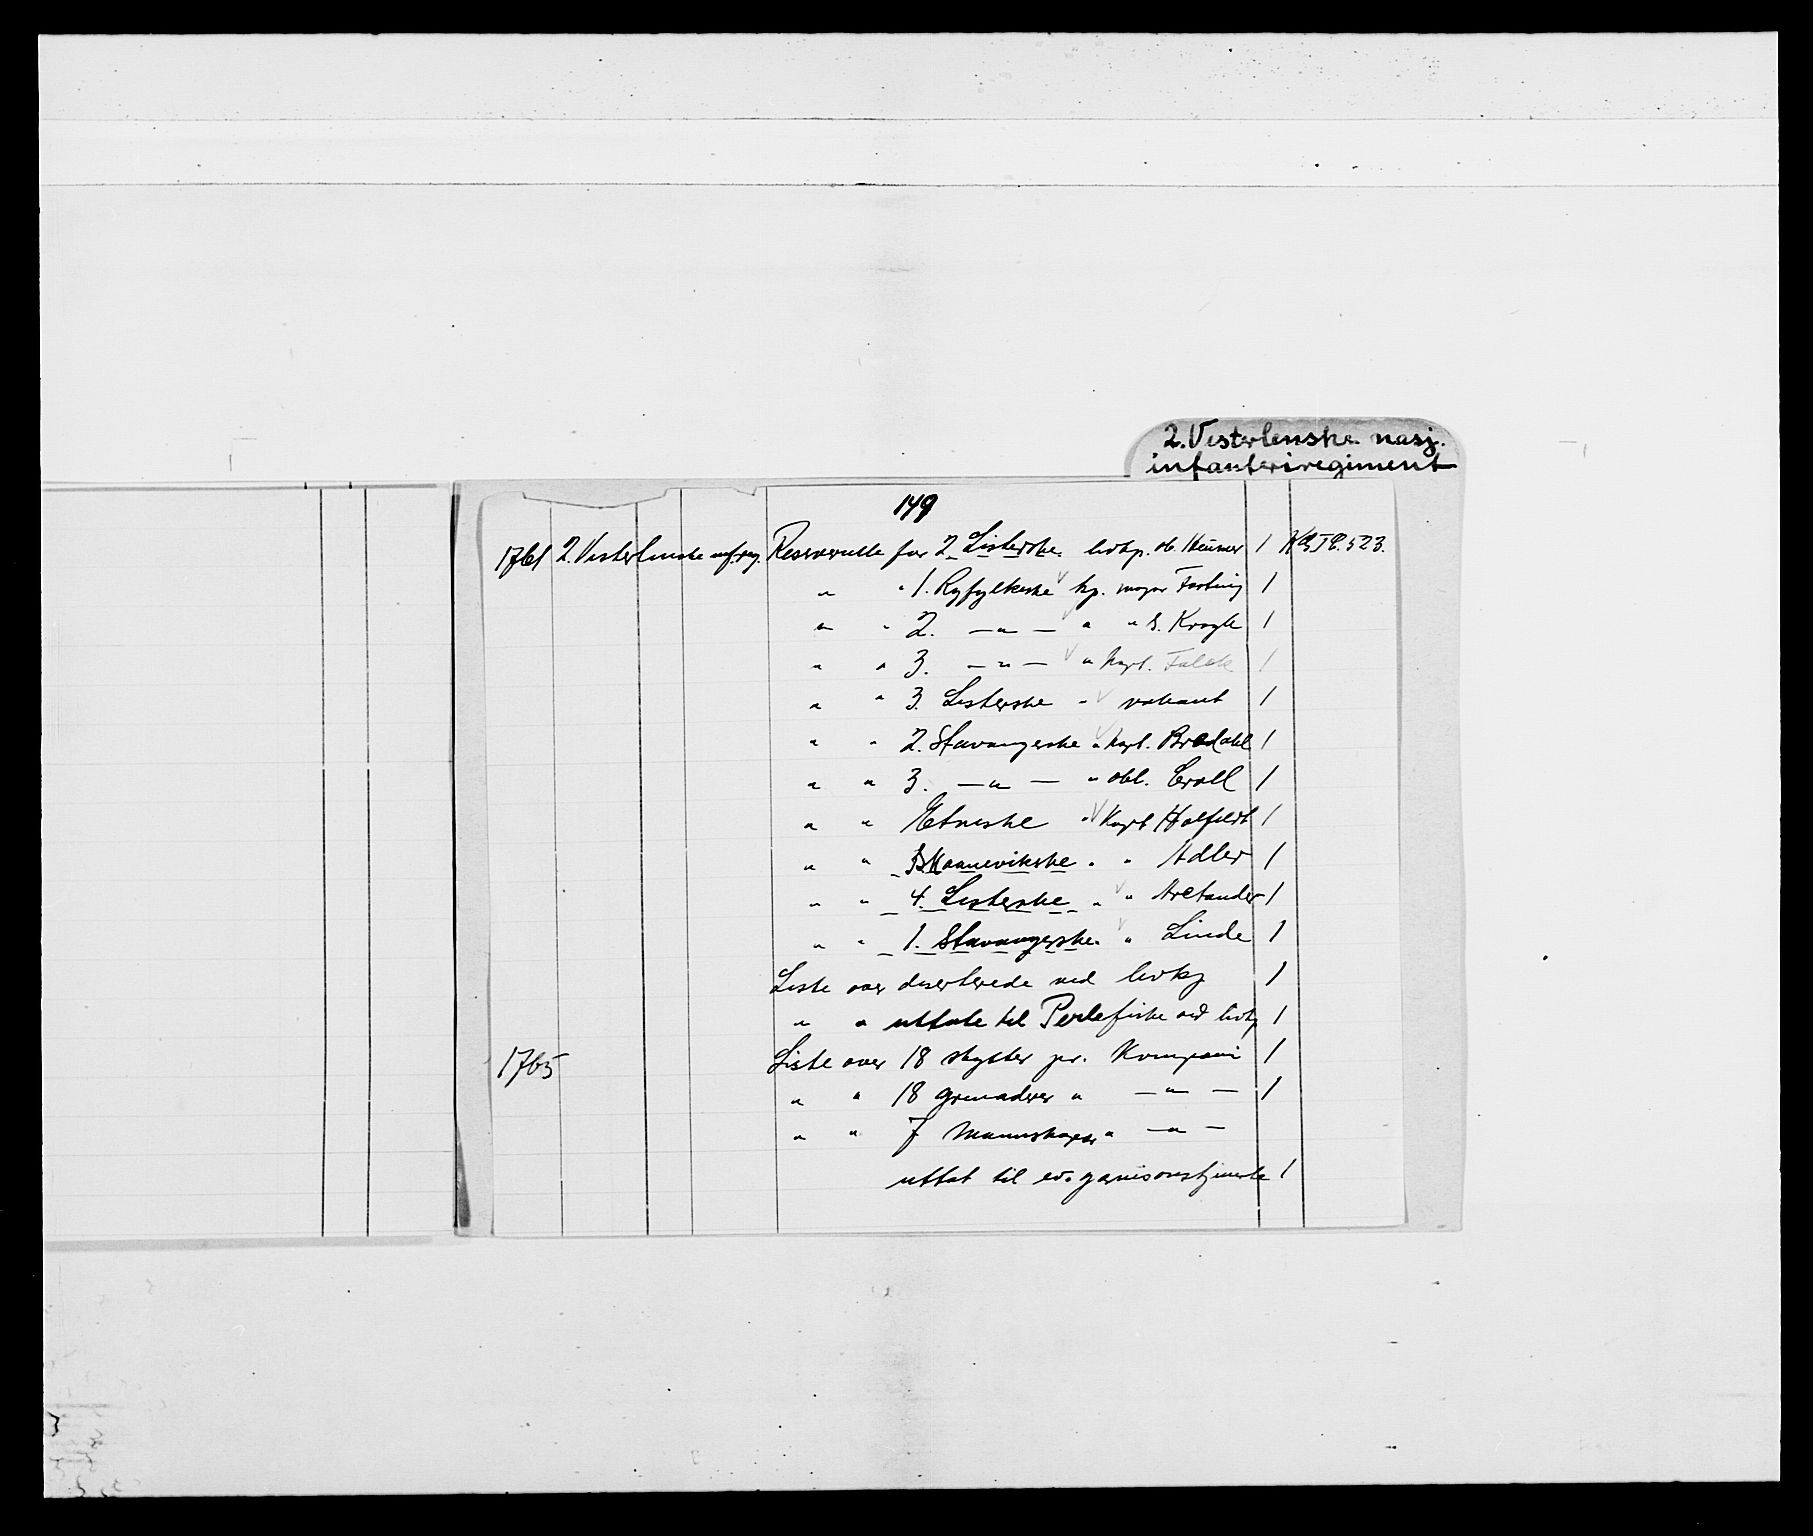 2. Vesterlenske nasj.
infanteriregiment
149
1761 2. Vesterlenske inf.reg. Reserverulle for 2. Listerske livkp. ob. Heumer 1 523.
" " 1. Ryfylkeske kp. major Fasting 1
" " 2. — " — " " S. Kragh 1
" " 3. — " — " kapt. Falck 1
" " 3. Listerske " vakant 1
" " 2. Stavangerske " kapt. Bredahl 1
" " 3. — " — " obl. Croll 1
" " Etneske " Kapt. Halfeldt 1
" " Skaanevikske " " Adler 1
" " 4. Listerske " " Aretander 1
" " 1. Stavangerske " Linde 1
Liste over deserterede ved livkp 1
" " uttate til Perlefiske ved livkp 1
1765 Liste over 18 skytter pr. Kompani 1
" " 18 grenaderer " — " — 1
" " 7 Mannskaper " — " —
uttat til garnisonstjeneste 1